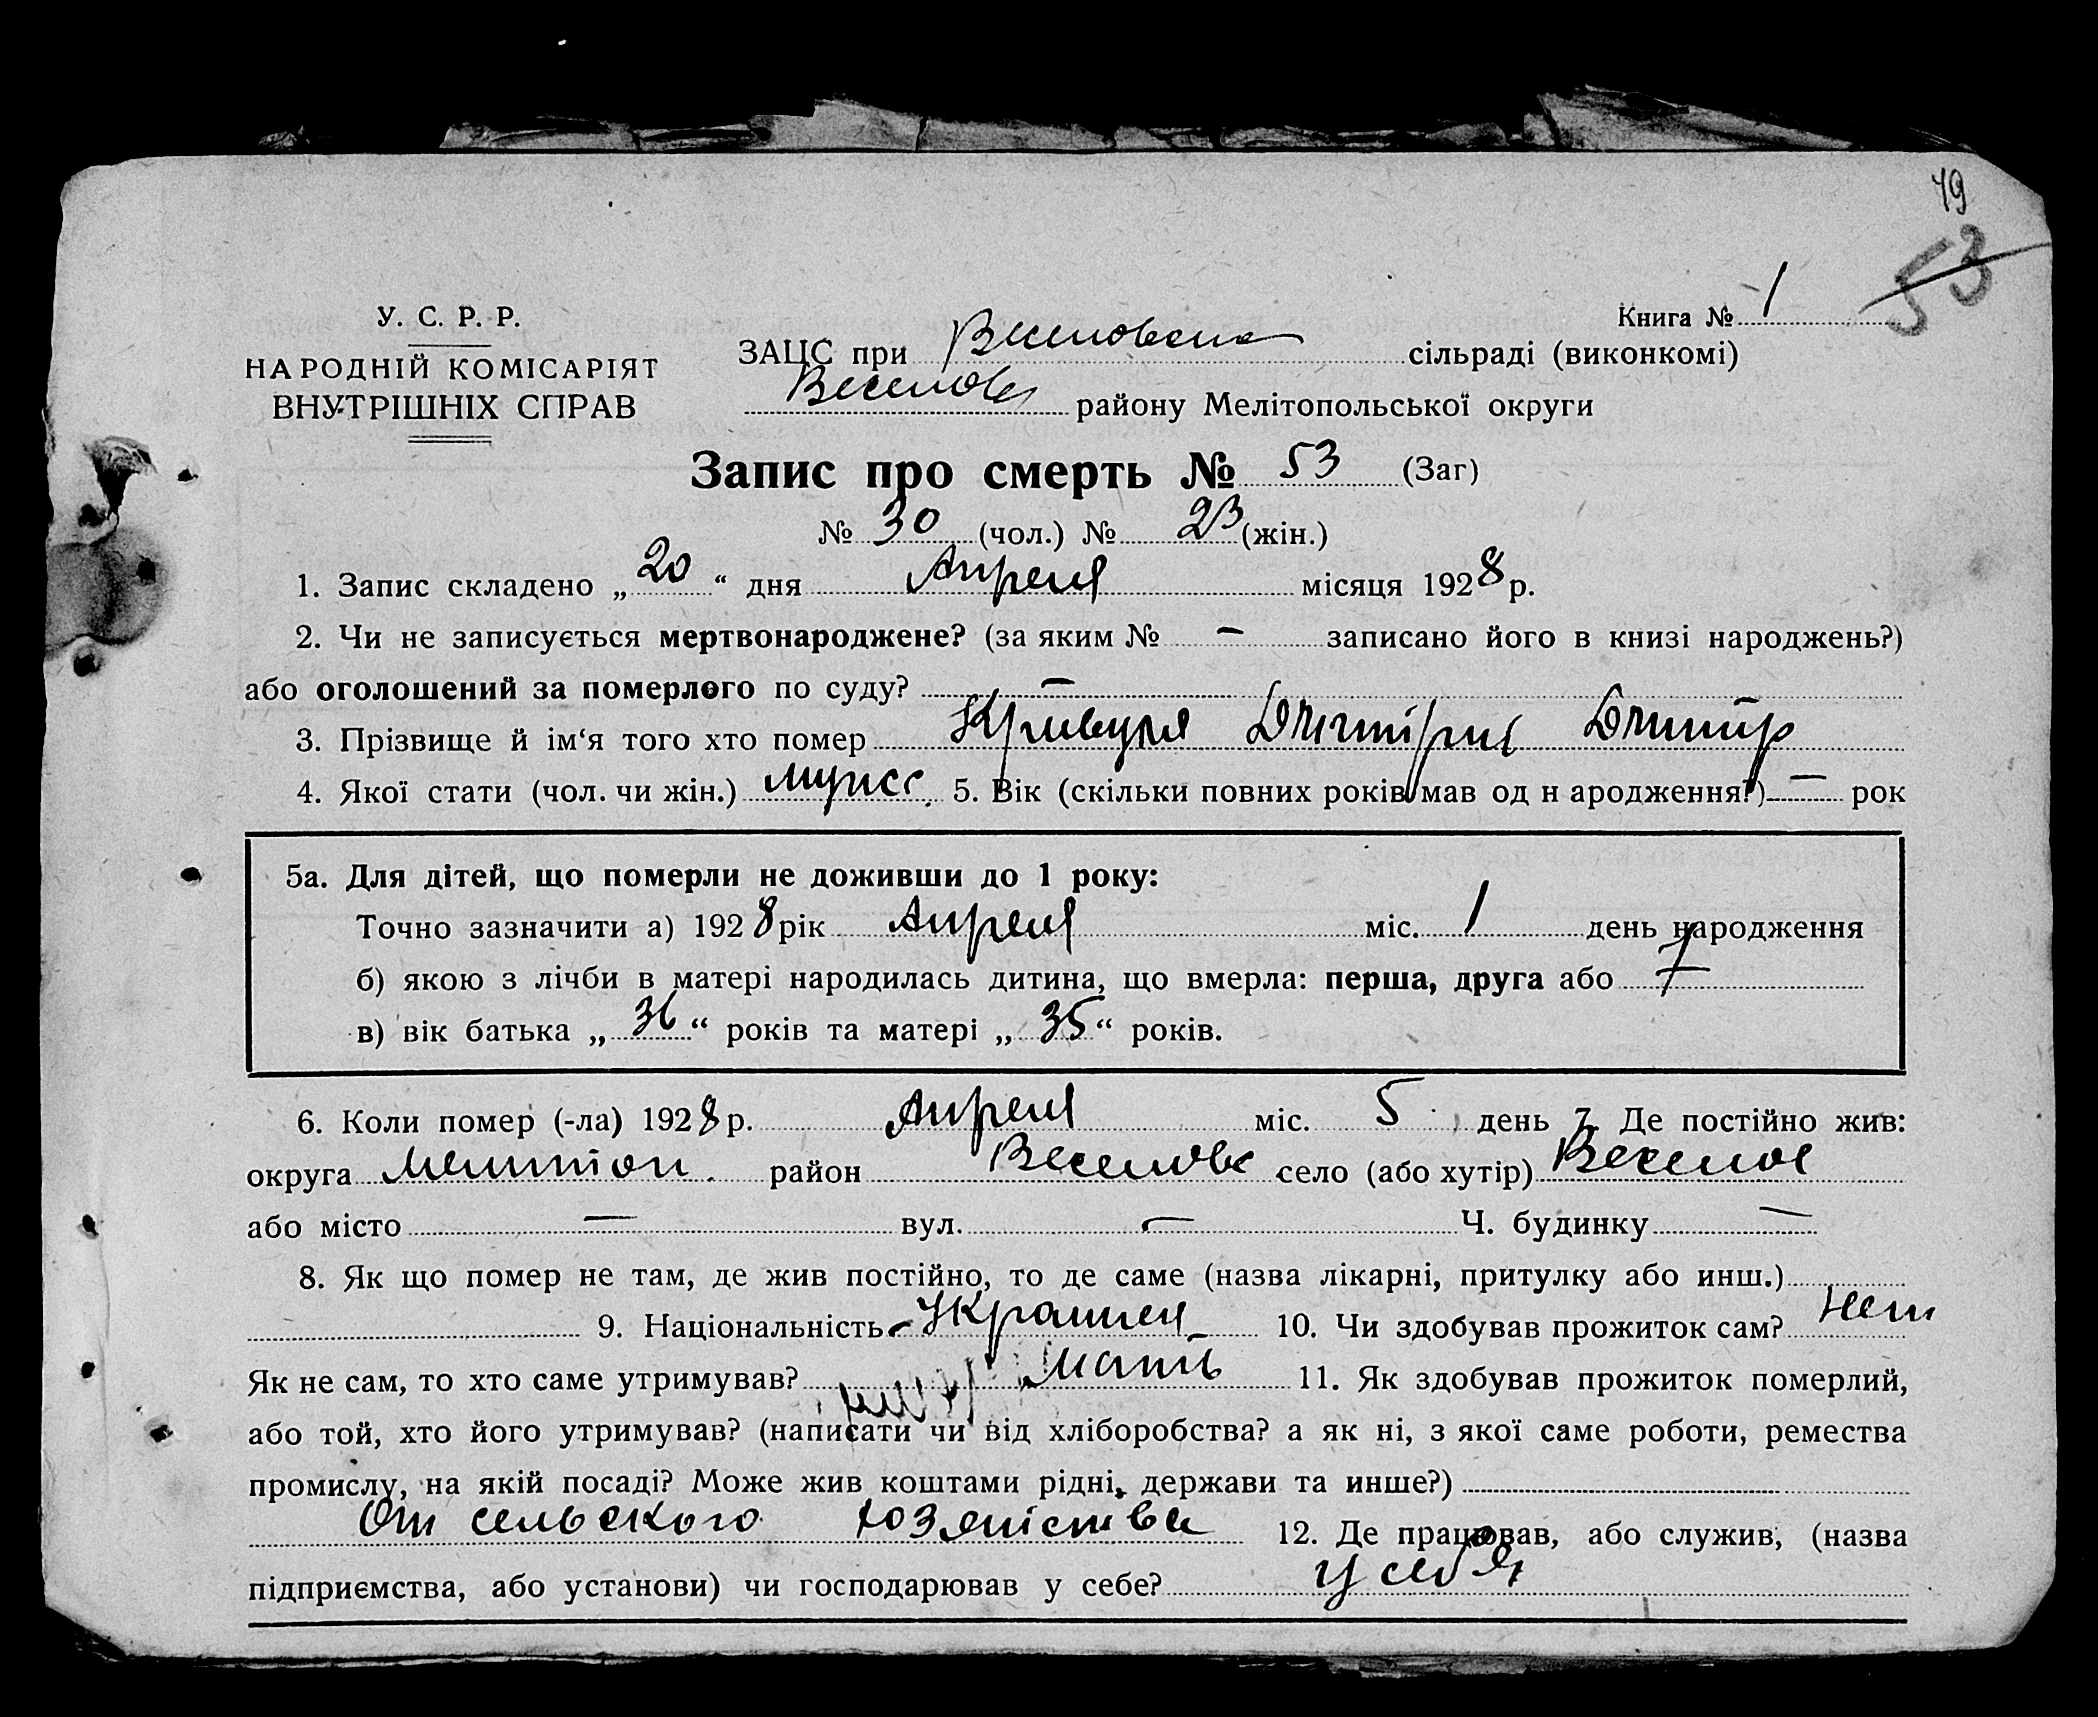 49
53
У. С. Р. Р.
Книга № 1
НАРОДНІЙ КОМІСАРІЯТ
ВНУТРІШНІХ СПРАВ
ЗАЦС при Веселовском сільраді (виконкомі)
Веселовск району Мелітопольської округи
Запис про смерть № 53 (Заг)
№ 30 (чол.) № 23 (жін.)
1. Запис складено „ 20 “ дня Апреля місяця 1928 р.
2. Чи не записується мертвонароджене? (за яким № — записано його в книзі народжень?)
або оголошений за померлого по суду? —
3. Прізвище й ім‘я того хто помер Кривуля Дмитрий Дмитр
4. Якої стати (чол. чи жін.) мужск. 5. Вік (скільки повних років мав од н ародження?) — рок
5а. Для дітей, що померли не доживши до 1 року:
Точно зазначити а) 1928 рік Апреля міс. 1 день народження
б) якою з лічби в матері народилась дитина, що вмерла: перша, друга або 7
в) вік батька „ 36 “ років та матері „ 35 “ років.
6. Коли помер (-ла) 1928 р. Апреля міс. 5 день 7. Де постійно жив:
округа Мелитоп. район Веселовс село (або хутір) Веселое
або місто — вул. — Ч. будинку —
8. Як що помер не там, де жив постійно, то де саме (назва лікарні, притулку або инш.)
9. Національність Украинец 10. Чи здобував прожиток сам? Нет
Як не сам, то хто саме утримував? Мать 11. Як здобував прожиток померлий,
або той, хто його утримував? (написати чи від хліборобства? а як ні, з якої саме роботи, ремества
промислу, на якій посаді? Може жив коштами рідні, держави та инше?)
От сельского хозяйства 12. Де працював, або служив, (назва
підприємства, або установи) чи господарював у себе? У себя